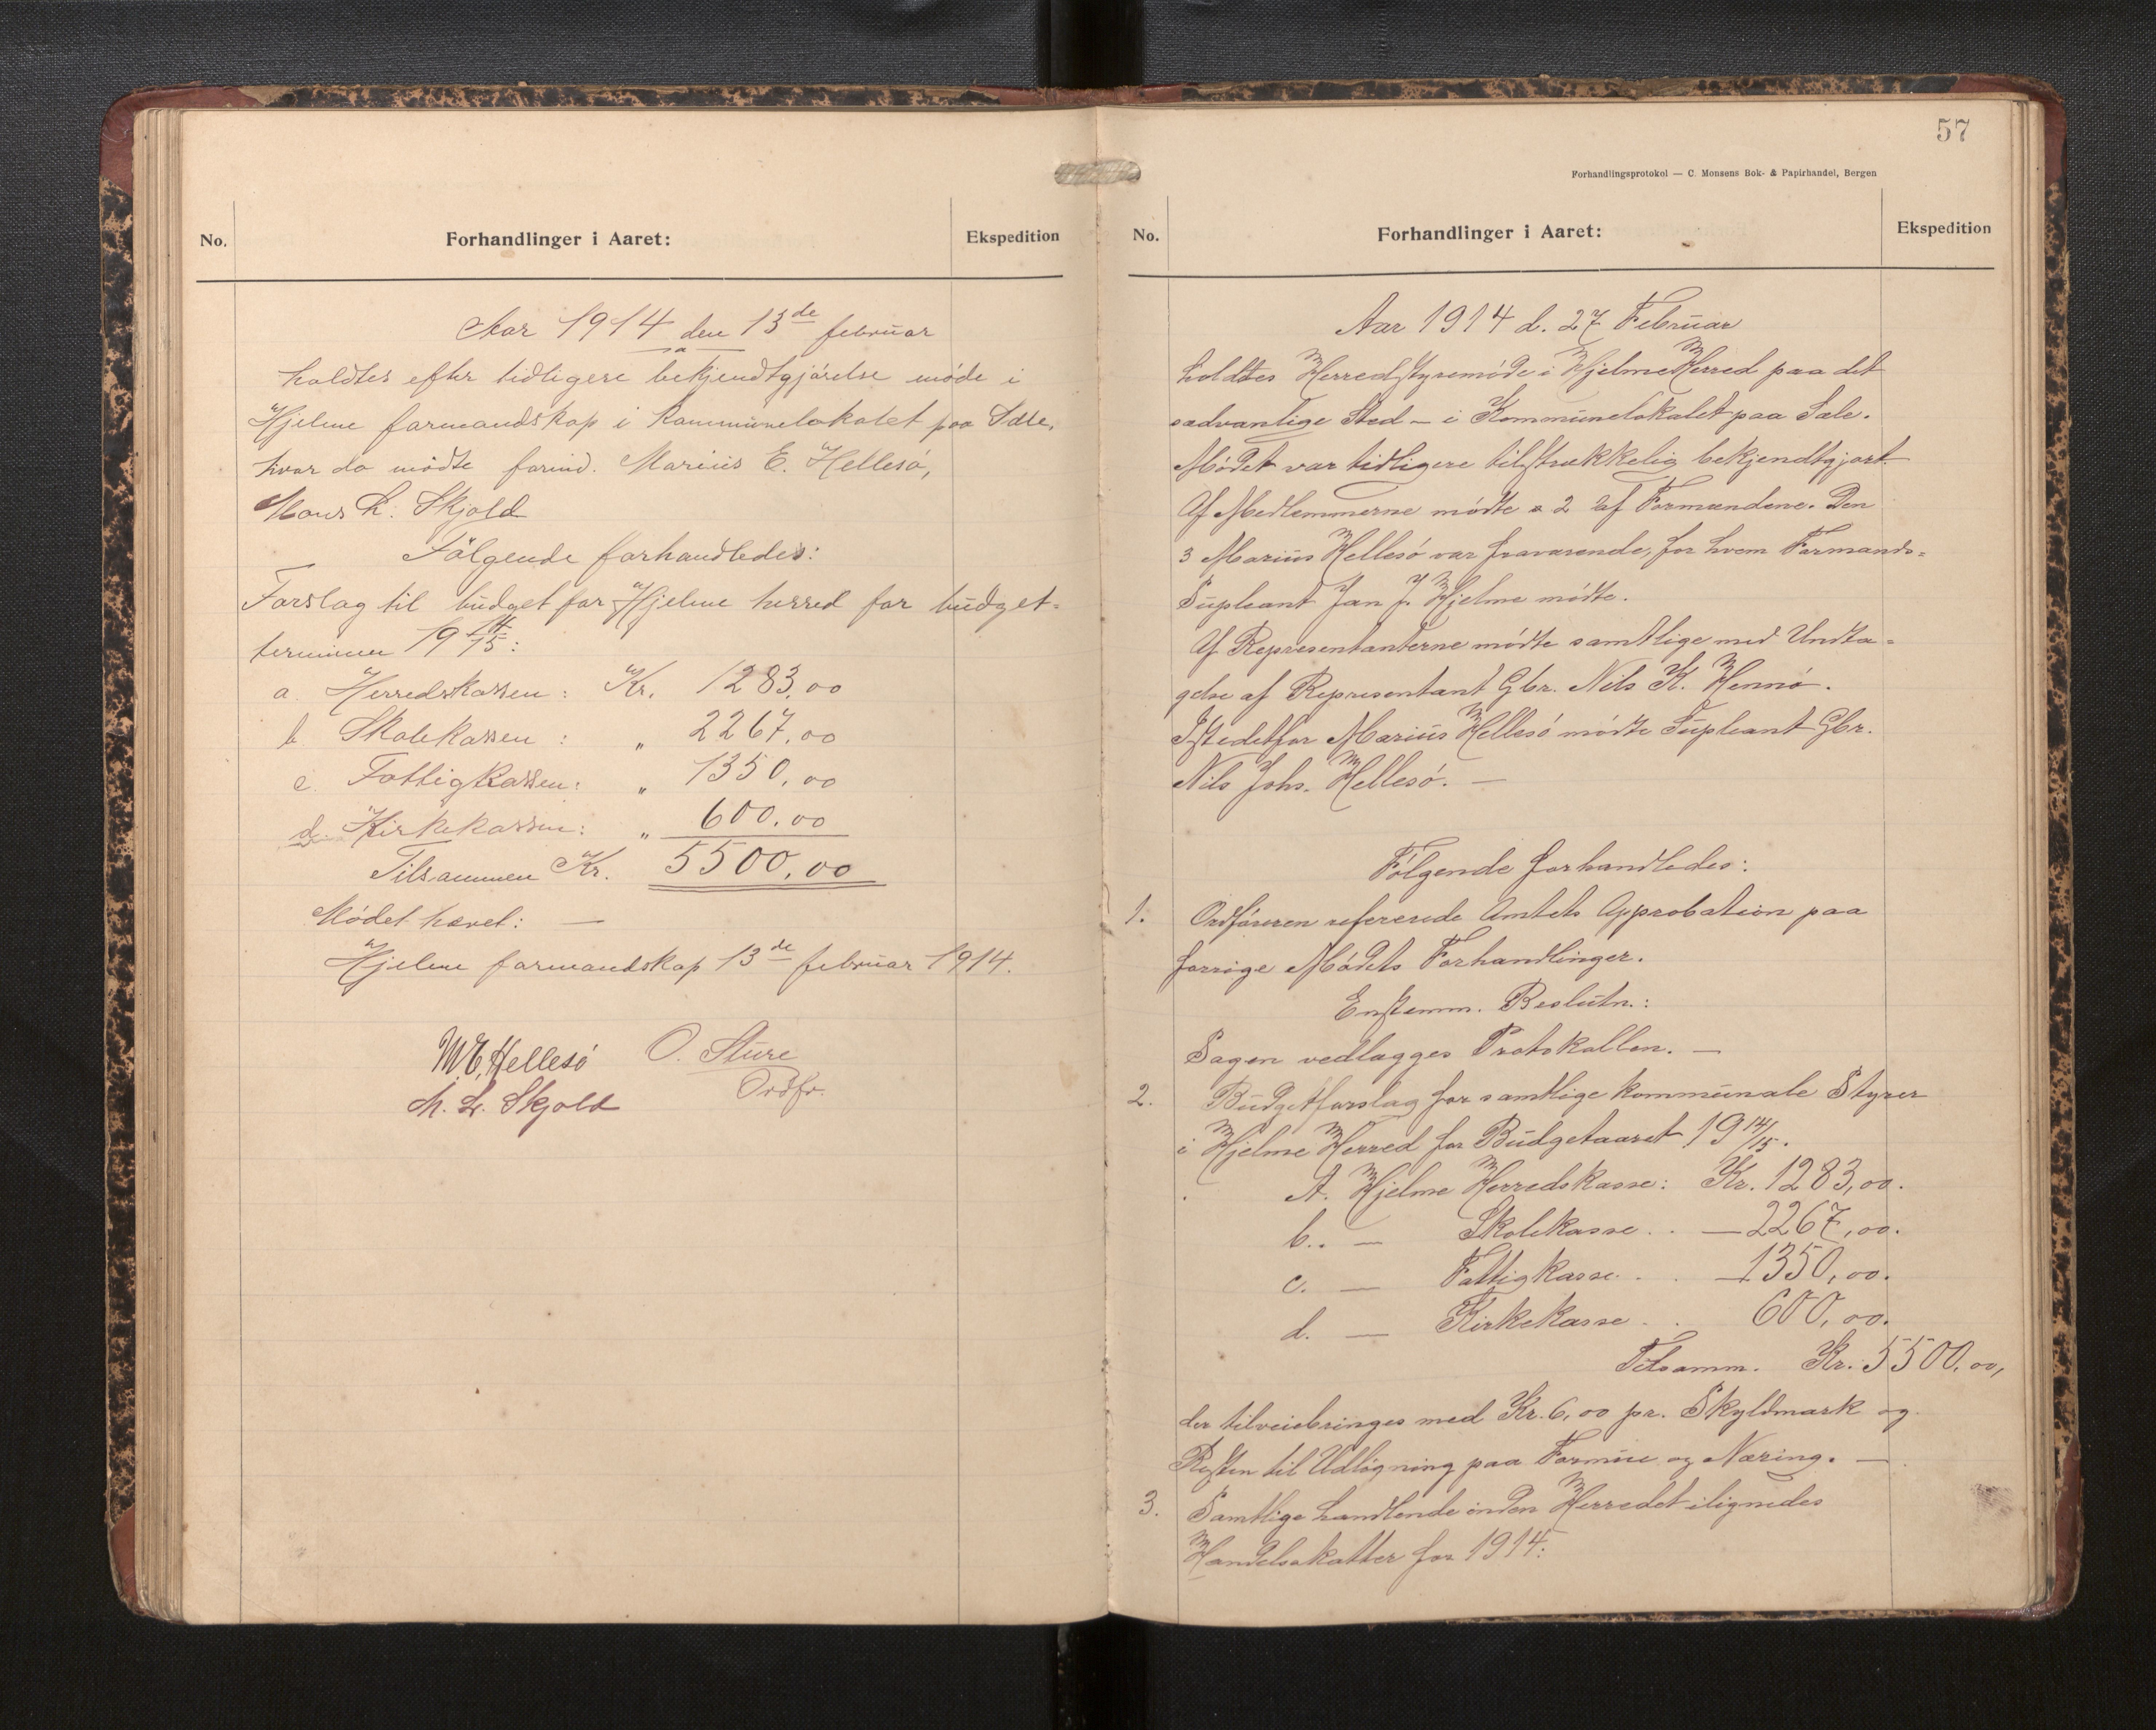 No.
Forhandlinger i Aaret:
Ekspedition
Aar 1914 den 13de februar
holdtes efter tidligere bekjendtgjörelse möde i
Hjelme formandskap i kommunelokalet paa Sæle,
hvor da mödte formd. Marius E. Hellesö,
Mons L. Skjold
Fölgende forhandledes:
Forslag til budget for Hjelme herred for budget-
terminen 1914/15:
a. Herredskassen: Kr. 1283,00
b Skolekassen: „ 2267,00
c. Fattigkassen: „ 1350,00
d. Kirkekassen: „ 600.00
Tilsammen Kr. 5500,00
Mödet hævet: —
Hjelme formandskap 13de februar 1914.
M.E. Hellesö O. Sture
M. L. Skjold Ordfr.
57
Forhandlingsprotokol — C. Monsens Bok- & Papirhandel, Bergen
No.
Forhandlinger i Aaret:
Ekspedition
Aar 1914 d. 27 Februar
holdtes Herredstyremöde i Hjelme Herred paa det
sædvanlige Sted - i Kommunelokalet paa Sæle.
Mödet var tidligere tilstrækkelig bekjendtgjort.
Af Medlemmerne mödte 2 af Formændene. Den
3 Marius Hellesö var fraværende, for hvem Formands-
Supleant Jan J. Hjelme mödte.
Af Repræsentanterne mödte samtlige med Undta-
gelse af Repræsentant Gbr. Nils K. Hennö.
Istedetfor Marius Hellesö mödte Supleant Gbr.
Nils Johs. Hellesö. —
Fölgende forhandledes:
1. Ordföreren refererede Amtets Approbation paa
forrige Mödets Forhandlinger.
Enstemm. Beslutn.:
Sagen vedlægges Protokollen. —
2. Budgetforslag for samtlige kommunale Styrer
i Hjelme Herred for Budgetaaret 1914/15.
A. Hjelme Herredskasse: Kr. 1283,00.
b. — Skolekasse . . — 2267,00.
c. — Fattigkasse . . — 1350,00.
d. — Kirkekasse . . 600,00.
Tilsamm. Kr. 5500,00,
der tilveiebringes med Kr. 6,00 pr. Skyldmark og
Resten til Udligning paa Formue og Næring. —
3. Samtlige handlende inden Herredet ilignedes
Handelsskatter for 1914: